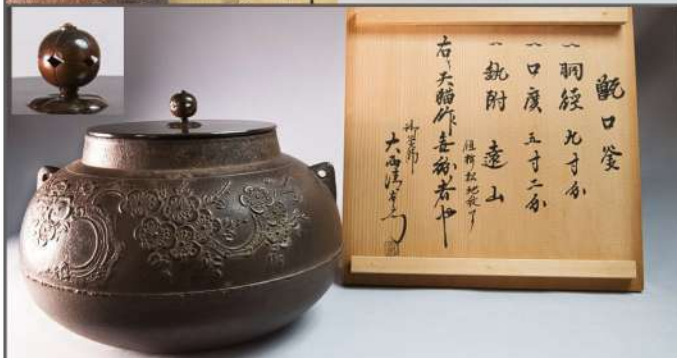 甑口釜
一 胴径 九寸分
一 口廣 五寸二分
一 釻附 遠山
右ハ天猫作無紛者也
御釜師
大西清右衛門